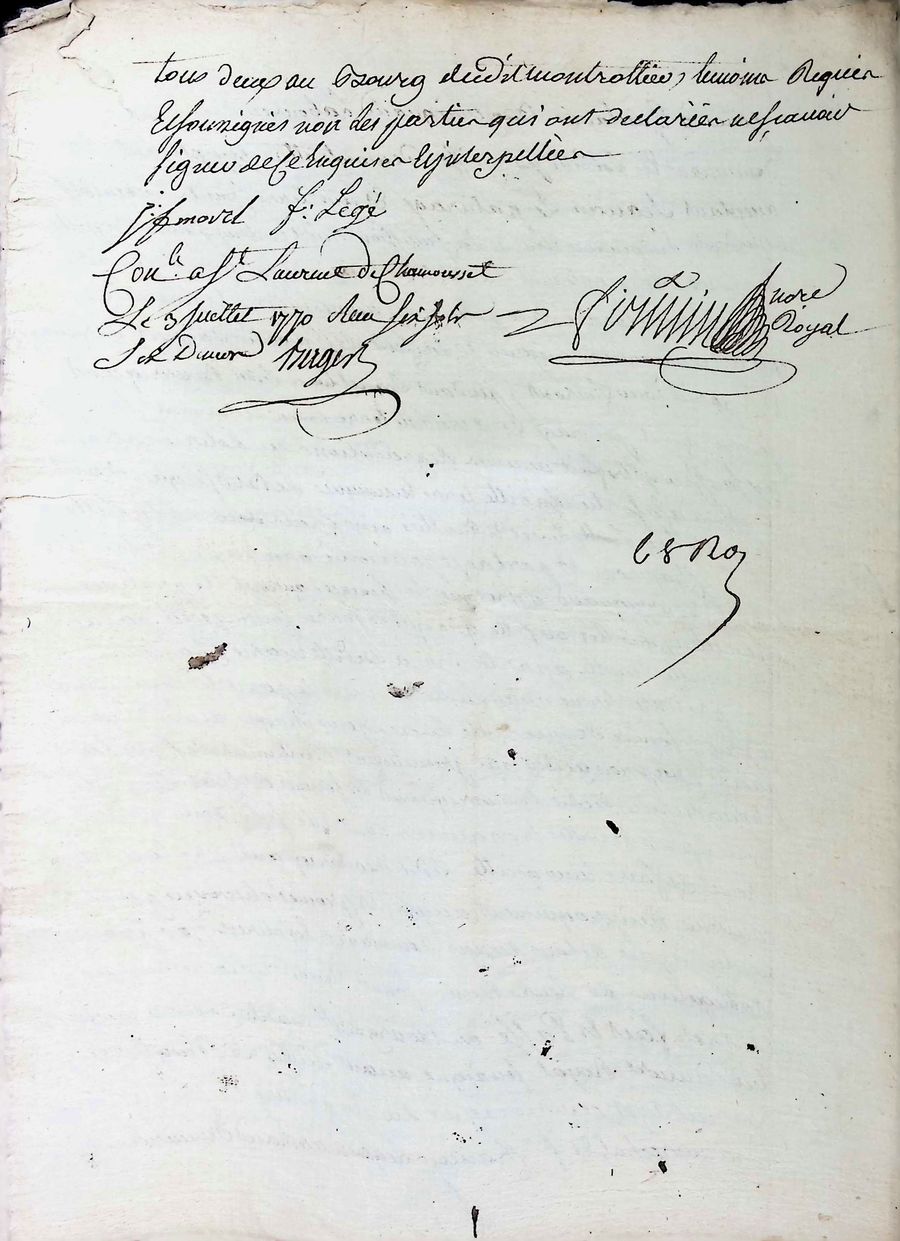 tous deux au Bourg dud.t montrottier, temoins Requis
Et soussignés non les parties qui ont declarées ne scavoir
signer de Ce Enquises Et jnterpellées
morel f: Legé
Con.lé a S.t Laurent de Chamousset
Le 3 Juillet 1770 Reçu six sols
Six Deniers
nore
Royal